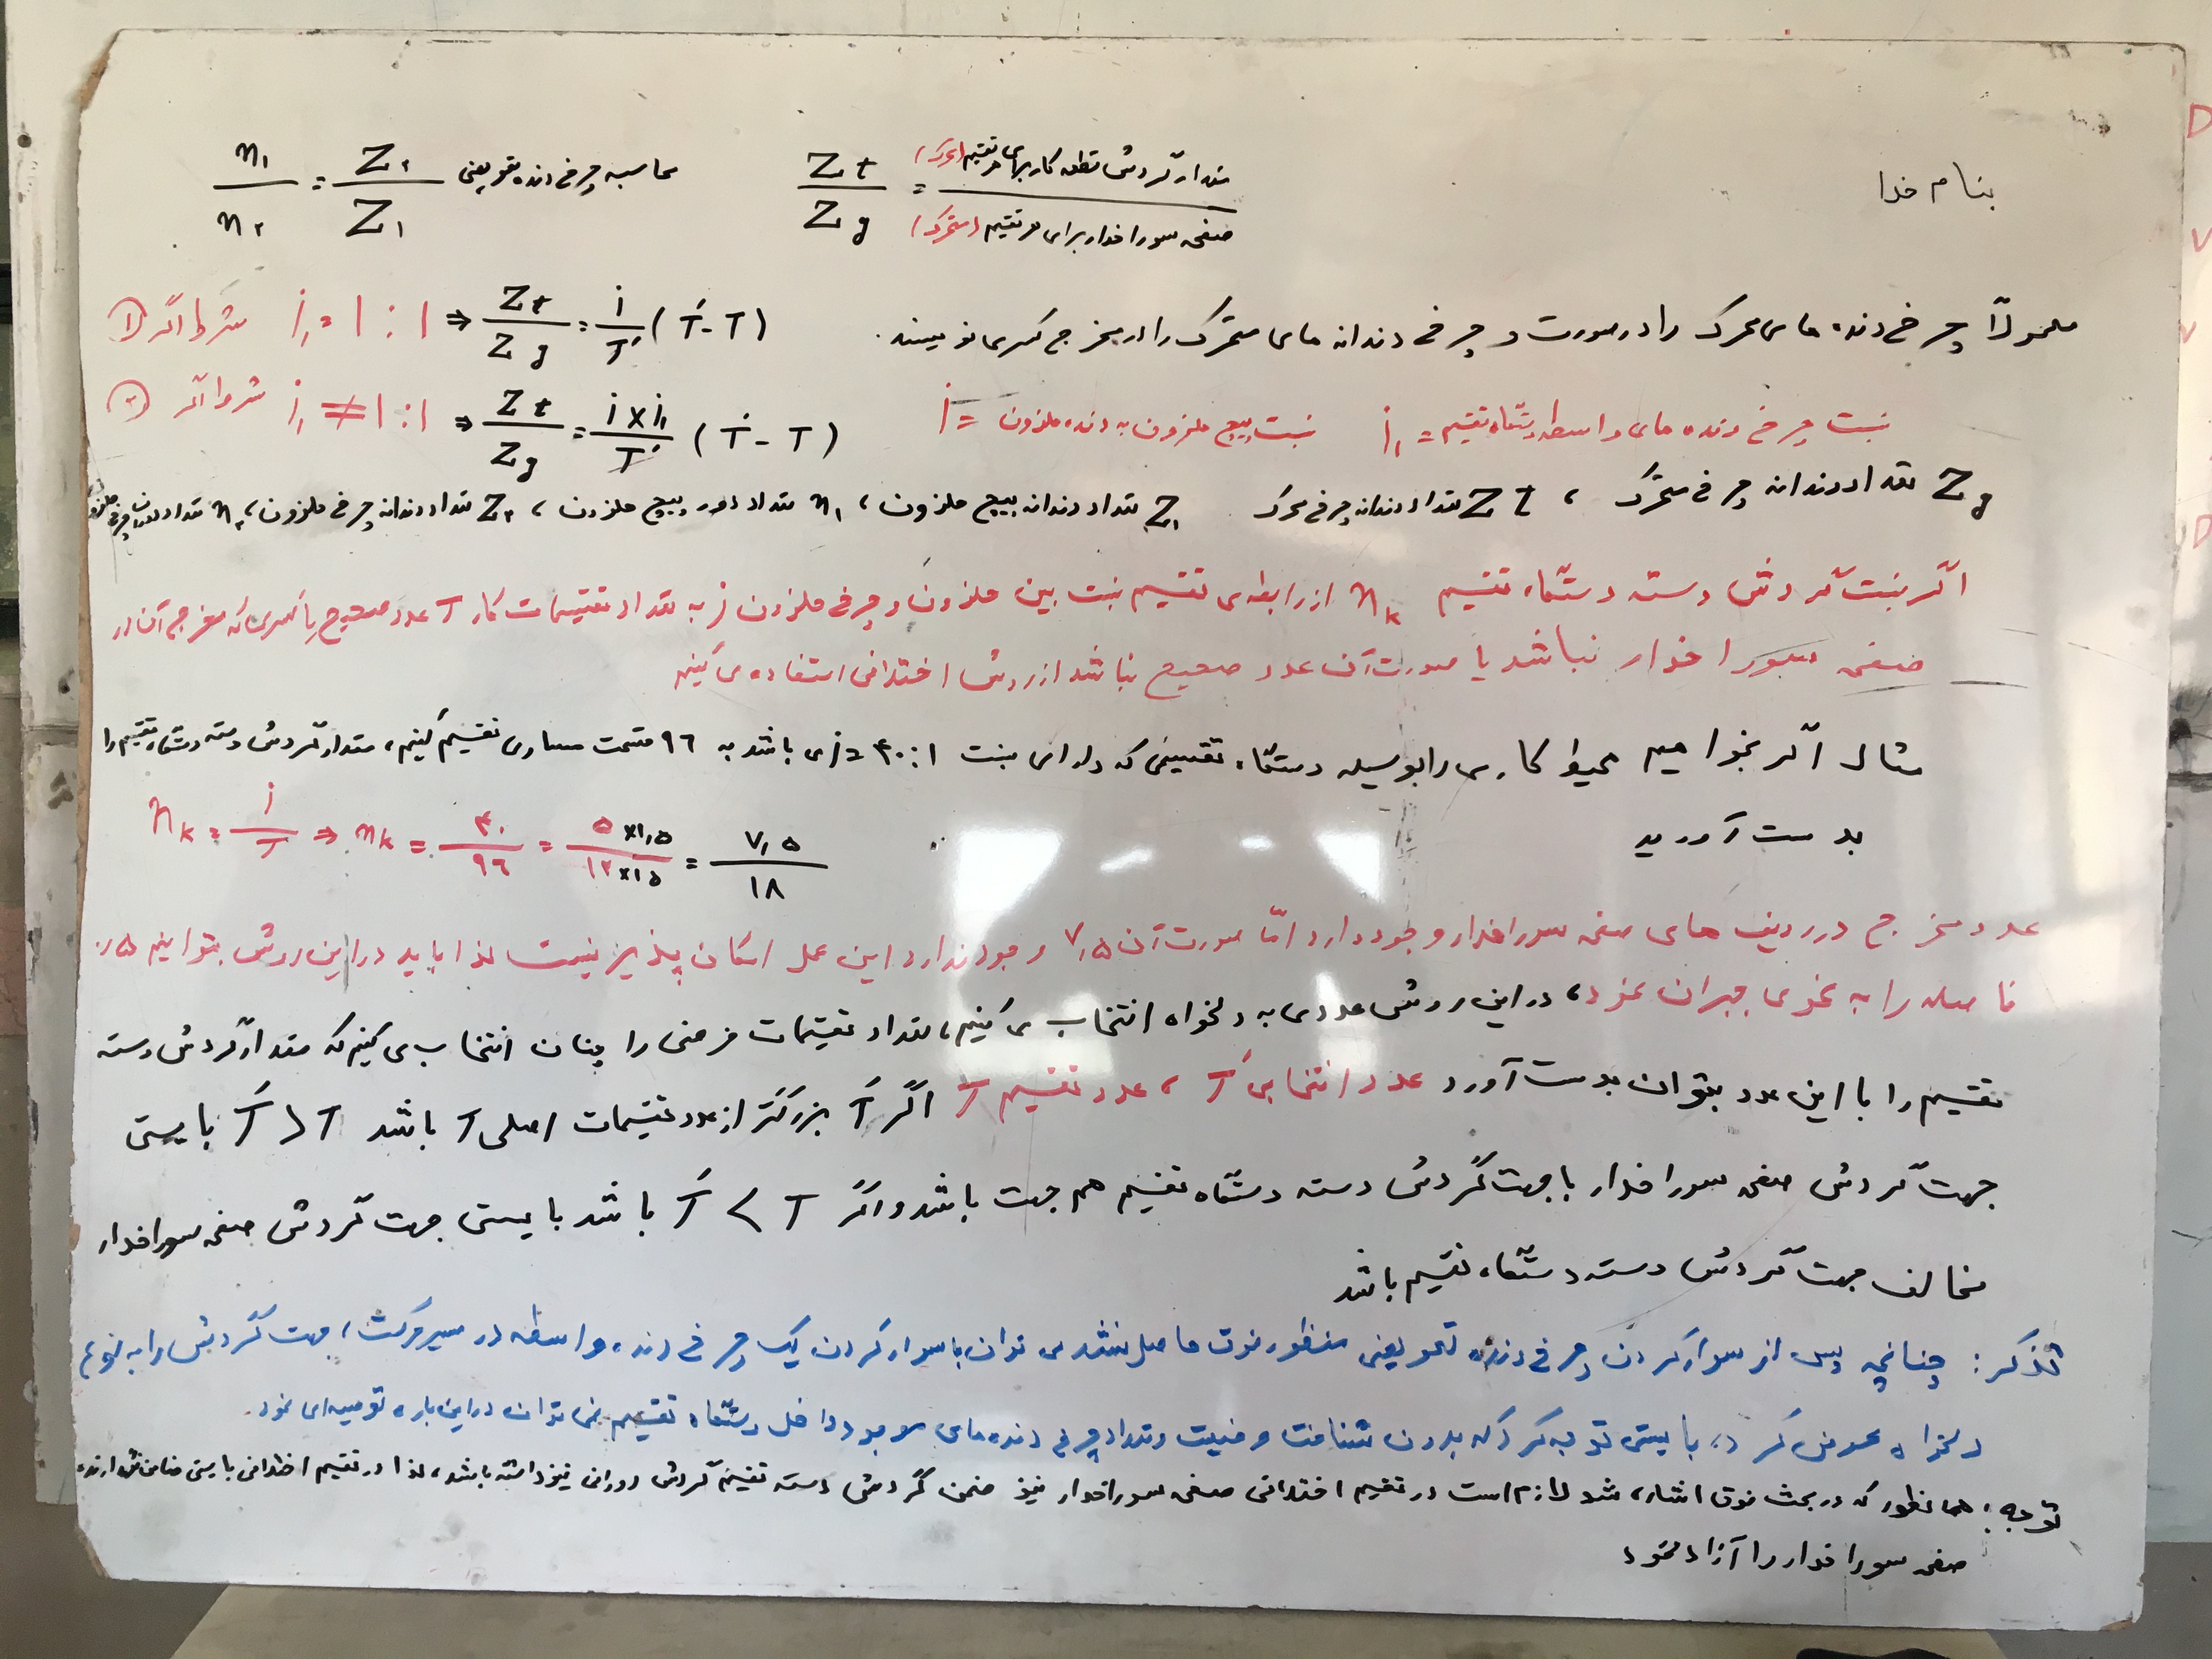 بنام خدا
Zt / Zg = مقدار گردش قطعه کار برای هر تقسیم (محرک) / صفحه سوراخدار برای هر تقسیم (متحرک)
محاسبه چرخ دنده تعویضی Z۲ / Z۱ = n۱ / n۲
معمولاً چرخ دنده های محرک را در صورت و چرخ دندانه های متحرک را در مخرج کسری نویسند.
شرط اگر ① i₁ = 1 : 1 ⇒ Zt / Zg = i / T' (T' - T)
شرط اگر ② i₁ ≠ 1 : 1 ⇒ Zt / Zg = i × i₁ / T' (T' - T)
نسبت چرخ دنده های واسطه دستگاه تقسیم = i₁ نسبت پیچ حلزون به دنده حلزون = i
Zg تعداد دندانه چرخ متحرک ، Zt تعداد دندانه چرخ محرک Z۱ تعداد دندانه پیچ حلزون ، n۱ تعداد دور پیچ حلزون ، Z۲ تعداد دندانه چرخ حلزون ، n۲ تعداد چرخ حلزون
اگر نسبت گردش دسته دستگاه تقسیم nk از رابطه ی تقسیم نسبت بین حلزون و چرخ حلزون i به تعداد تقسیمات کار T عدد صحیح یا کسری که مخرج آن در
صفحه سوراخدار نباشد یا صورت آن عدد صحیح نباشد از روش اختلافی استفاده می کنیم
مثال اگر بخواهیم محیط کاری را بوسیله دستگاه تقسیمی که دارای نسبت i = ۴۰:۱ می باشد به ۹۶ قسمت مساوی تقسیم کنیم، مقدار گردش دسته دستگاه تقسیم را
بدست آورید
nk = i / T ⇒ nk = ۴۰ / ۹۶ = ۵ ×۱٫۵ / ۱۲ ×۱٫۵ = ۷٫۵ / ۱۸
عدد مخرج در ردیف های صفحه سوراخدار وجود دارد امّا صورت آن ۷٫۵ وجود ندارد این عمل امکان پذیر نیست لذا باید در این روش بتوانیم ۰٫۵
فاصله را به نحوی جبران نمود، در این روش عددی به دلخواه انتخاب می کنیم، تعداد تقسیمات فرضی را چنان انتخاب می کنیم که مقدار گردش دسته
تقسیم را با این عدد بتوان بدست آورد عدد انتخابی T' ، عدد تقسیم T اگر T' بزرگتر از عدد تقسیمات اصلی T باشد T' > T بایستی
جهت گردش صفحه سوراخدار با جهت گردش دسته دستگاه تقسیم هم جهت باشد و اگر T' < T باشد بایستی جهت گردش صفحه سوراخدار
مخالف جهت گردش دسته دستگاه تقسیم باشد
تذکر : چنانچه پس از سوار کردن چرخ دنده تعویضی منظور فوق حاصل نشد می توان با سوار کردن یک چرخ دنده واسطه در مسیر حرکت، جهت گردش را به نوع
دلخواه عوض کرد، بایستی توجه کرد که بدون شناخت وضعیت و تعداد چرخ دنده های موجود داخل دستگاه تقسیم نمی توان در این باره توصیه ای نمود.
توجه : همانطور که در بحث فوق اشاره شد لازم است در تقسیم اختلافی صفحه سوراخدار نیز ضمن گردش دسته تقسیم گردش دورانی نیز داشته باشد، لذا در تقسیم اختلافی بایستی ضامن نگهدارنده
صفحه سوراخدار را آزاد نمود